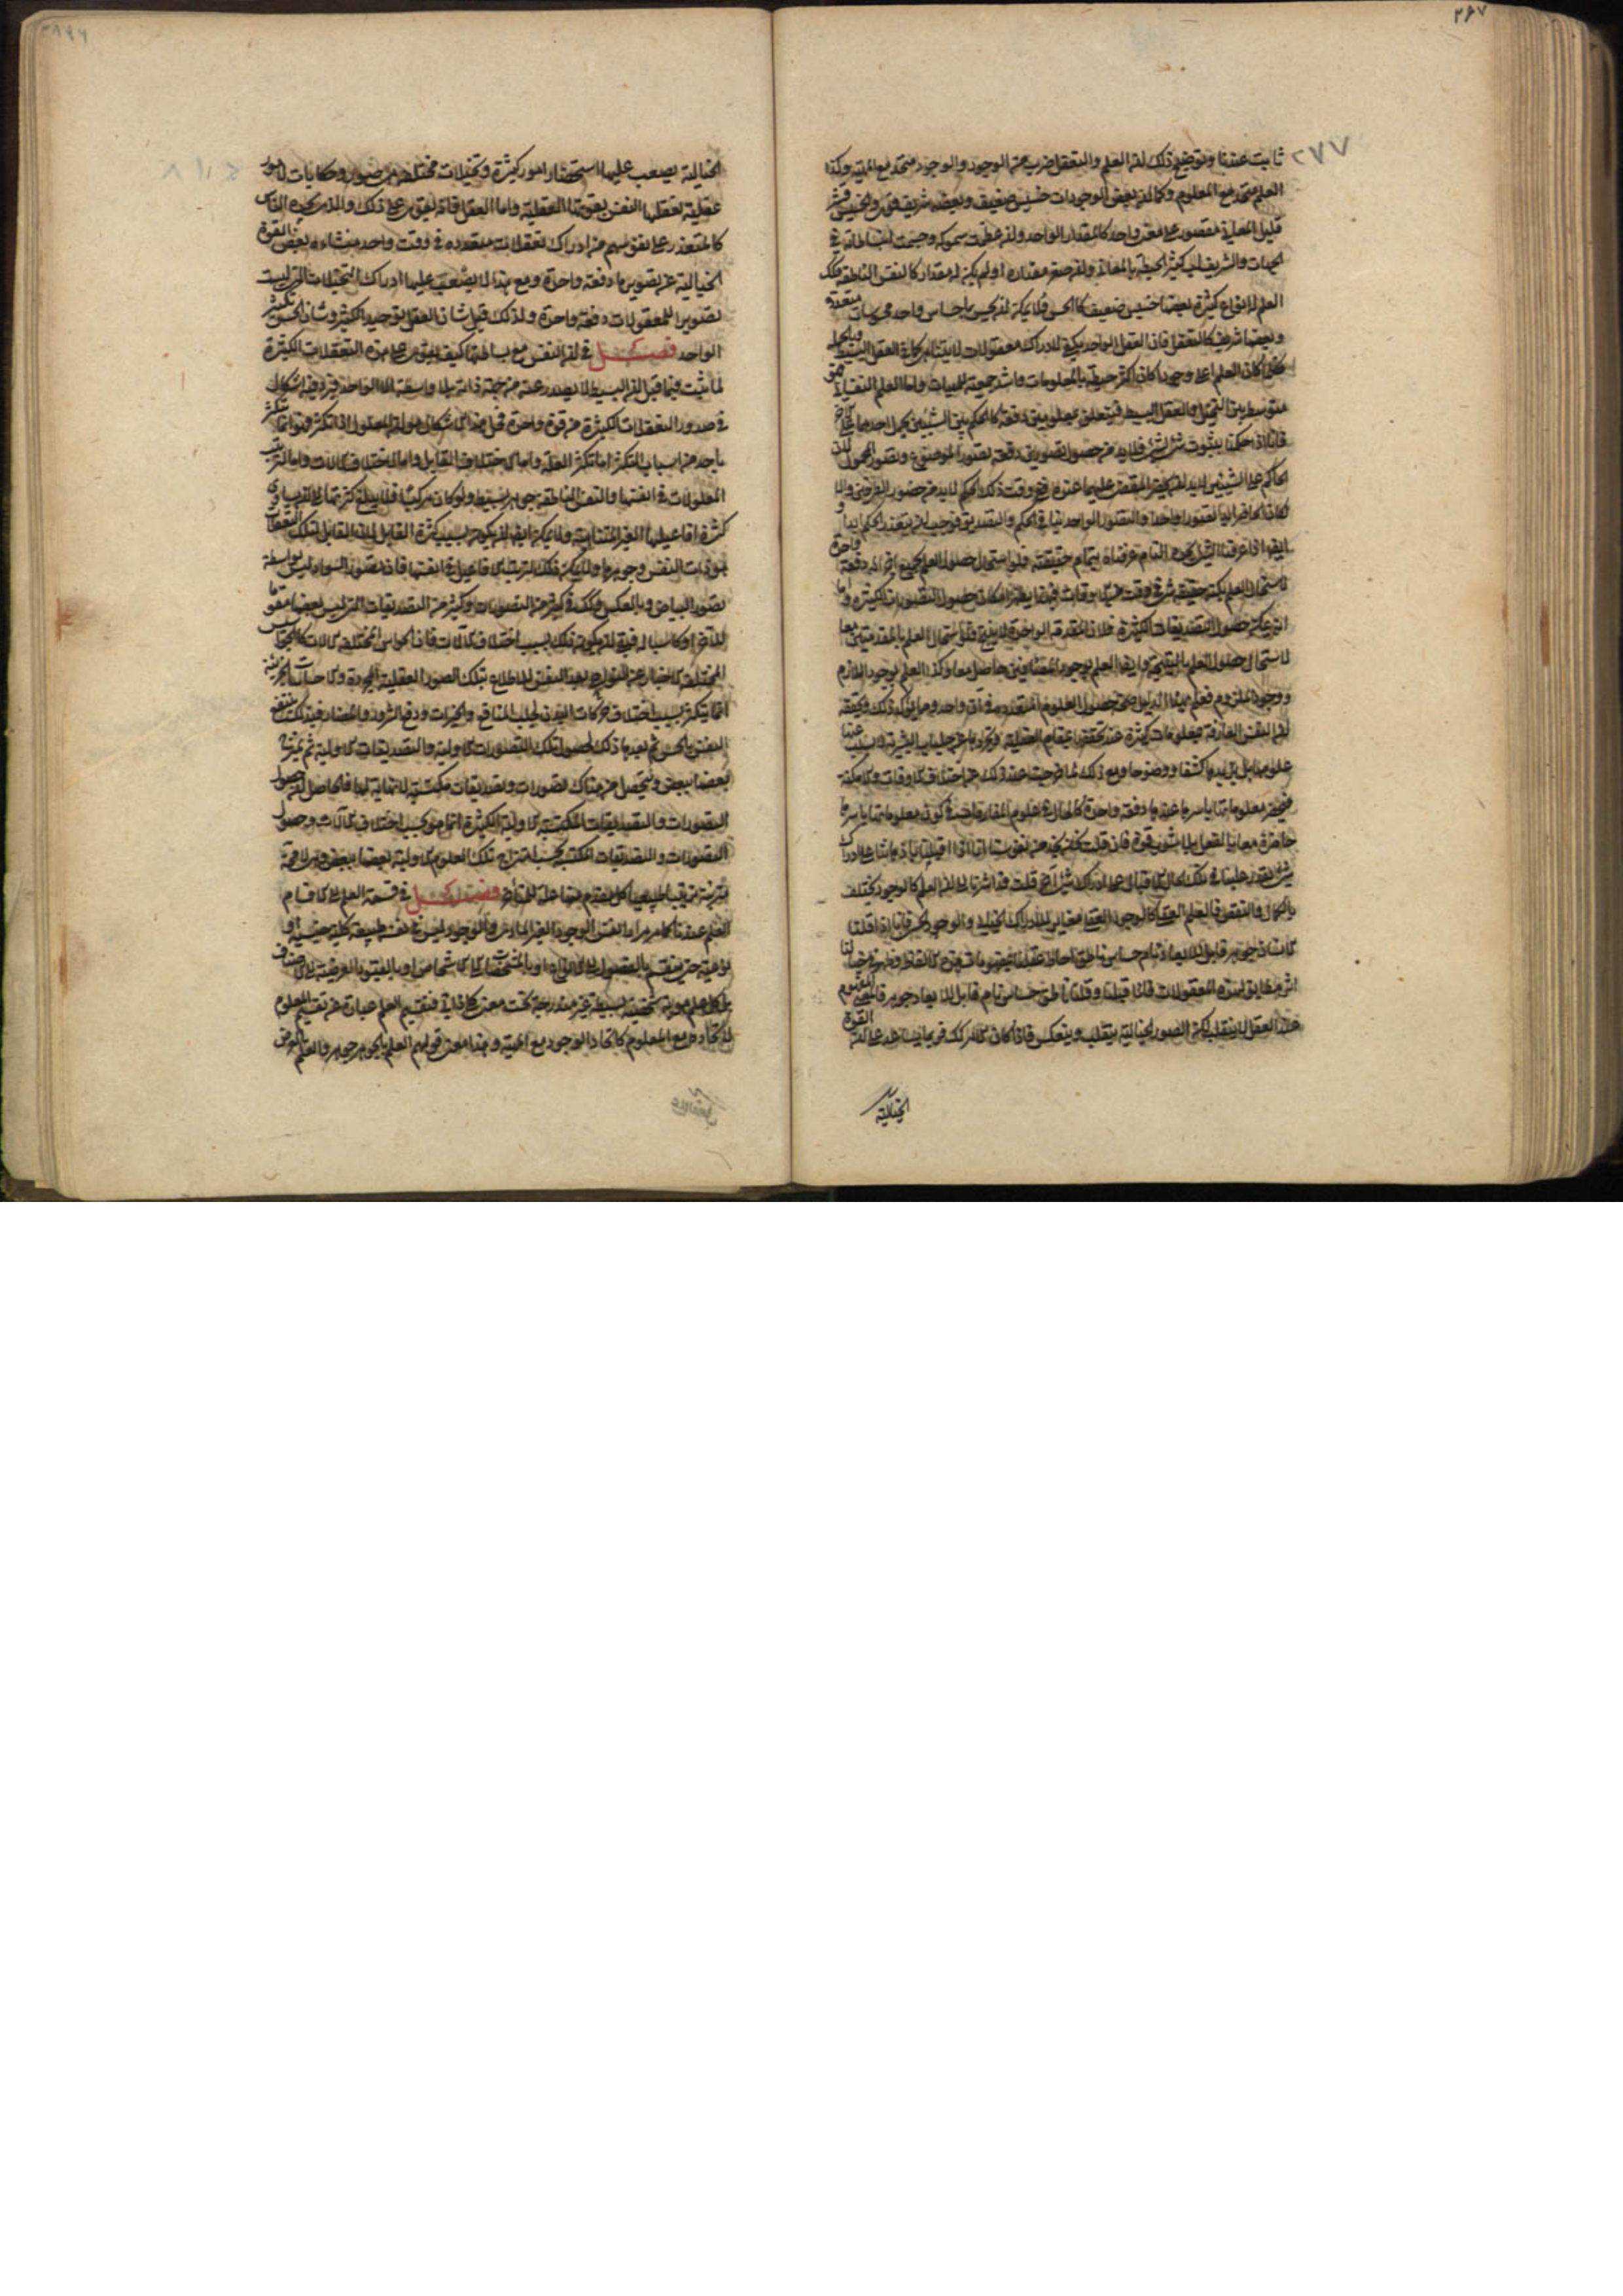 ٢٦٧
٢٧٧
ثابت عندنا وتوضيح ذلك ان العلم والتعقل ضرب من الوجود والوجود متحد مع المهية وكذا
العلم متحد مع المعلوم وكما ان بعض الوجودات خسيس ضعيف وبعضه شريف قوى والخسيس قشر
قليل المعانى مقصور على معنى واحد كالمقدار الواحد ولو عظمت سموكه وجسمت انبساطاته فى
الجهات والشريف لب كثير الحيطة بالمعانى ولو صغر مقداره او لم يكن له مقدار كالنفس الناطقة فكذلك
العلم له انواع كثيرة بعضها خسيس ضعيف كالحس فلا يمكن ان يحس باحساس واحد محسوسات متعددة
وبعضها شريف كالتعقل فان العقل الواحد يكفى لادراك معقولات لا يتناهى كما فى العقل البسيط وبالجملة
كلما كان العلم اعلى وجودا كان اكثر حيطة بالمعلومات واشد جمعية للمهيات واما العلم النفسانى فهو
متوسط بين التخيل والعقل البسيط فيتعلق بمعلومين دفعة كالحكم بين الشيئين بحمل احدهما على الاخر
فانا اذا حكمنا بثبوت شىء لشىء فلابد من حصول تصورين دفعة تصور الموضوع وتصور المحمول لان
الحاكم على الشيئين لابد ان يحضره المقضى عليهما عنده ففى وقت ذلك الحكم لابد من حضور الطرفين والا
لكان الحاضر ابدا تصورا واحدا والتصور الواحد ينافى الحكم والتصديق فوجب ان يتعذر الحكم ابدا و
ايضا اذا عرفنا الشىء بحده التام عرفناه بتمام حقيقته ولو استحال حصول العلم بجميع اجزائه دفعة واحدة
لاستحال العلم بكنه حقيقة شىء فى وقت من الاوقات فبهذا يظهر امكان حصول التصورات الكثيرة واما
انه يمكن حصول التصديقات الكثيرة فلان المقدمة الواحدة لا ينتج فلو استحال العلم بالمقدمتين معا
لاستحال حصول العلم بالنتيجة وايضا العلم بوجود المضافين حاصل معا وكذا العلم بوجود اللازم
ووجود الملزوم فعلم بهذا الدليل صحة حصول العلوم المتعددة فى آن واحد ومما يؤكد ذلك ويحققه
ان النفس العارفة بمعلومات كثيرة عند تحققها بمقام العقلية وتجردها عن جلباب البشرية لا يسلب عنها
علومها بل يزيدها كشفا ووضوحا ومع ذلك لما خرجت عند ذلك عن اختلاف الاوقات والامكنة
فيحضر معلوماتها باسرها عندها دفعة واحدة كالحال فى علوم المفارقات فى كون معلوماتها باسرها
حاضرة معا بالفعل بلا شوب قوة فان قلت نحن نجد من نفوسنا انا اذا اقبلنا باذهاننا على ادراك
شىء يتعذر علينا فى تلك الحال الاقبال على ادراك شىء آخر قلت قد اشرنا الى ان العلم كالوجود يختلف
بالكمال والنقص فالعلم العقلى كالوجود العقلى مغاير للادراك الخيالى والوجود الحسى فانا اذا قلنا
الانسان جوهر قابل للابعاد نام حساس ناطق احاط عقلنا بمفهومات هذه الالفاظ وظهر فى خيالنا
اثر مطابق لهذه المعقولات فاذا قلبنا وقلنا ناطق حساس نام قابل للابعاد جوهر فالمعنى المفهوم
عند العقل لا ينقلب لكن الصور الخيالية ينقلب وينعكس فاذا كان كذلك فربما يساعد على ان القوة
الخيالية
الخيالية يصعب عليها استحضار امور كثيرة وتخيلات مختلفة هى صور وحكايات لامور
عقلية تعقلها النفس بقوتها العقلية واما العقل فانه يقوى على ذلك والذى يجده الناس
كالمتعذر على نفوسهم من ادراك تعقلات متعددة فى وقت واحد منشاءه بعض القوة
الخيالية عن تصويرها دفعة واحدة ومع هذا لا يصعب عليها ادراك التخيلات التى ليست
تصويرا للمعقولات دفعة واحدة ولذلك قيل شان العقل توحيد الكثير وشان الحس تكثير
الواحد فصل فى ان النفس مع بساطتها كيف يقوى على هذه التعقلات الكثيرة
لما ثبت فيما قبل ان البسيط لا يصدر عنه من جهة ذاته بلا واسطة الا الواحد فيرد فيه اشكال
فى صدور التعقلات الكثيرة من قوة واحدة فحل هذا الاشكال هو ان المعلول اذا تكثر فهو انما تكثر
باحد من اسباب التكثر اما تكثر العلة واما لاختلاف القابل واما لاختلاف الآلات واما لترتب
المعلولات فى انفسها والنفس الناطقة جوهر بسيط ولو كان مركبا فلا يبلغ كثرتها الى ان يساوى
كثرة افاعيلها الغير المتناهية ولا يمكن ايضا ان يكون بسبب كثرة القابل لان القابل لتلك التعقلات
هو ذات النفس وجوهرها ولا يمكن ذلك لترتيب الافاعيل فى انفسها فان تصور السواد ليس بواسطة
تصور البياض وبالعكس وكذلك فى كثير من التصورات وكثير من التصديقات التى ليس بعضها مقوما
للآخر او كاسبا له فبقى ان يكون ذلك بسبب اختلاف الآلات فان الحواس المختلفة كالآلات كالجواسيس
المختلفة الاخبار عن النواحى يعد النفس للاطلاع بتلك الصور العقلية المجردة والاحساسات الجزئية
انما يتكثر بسبب اختلاف حركات البدن لجلب المنافع والخيرات ودفع الشرور والمضار فبذلك ينتفع
النفس بالحس ثم يعدها ذلك لحصول تلك التصورات الاولية والتصديقات الاولية ثم يمتزج
بعضها ببعض ويتحصل من هناك تصورات وتصديقات مكتسبة لا نهاية لها فالحاصل ان حصول
التصورات والتصديقات الاولية الكثيرة انما هو بحسب اختلاف الآلات وحصول
التصورات والتصديقات المكتسبة بحسب امتزاج تلك العلوم الاولية بعضها ببعض وهى لا محة
مترتبة ترتيبا طبيعيا كل مقدم منها علة للمتأخر فصل فى قسمة العلم الى الاقسام
العلم عندنا كما مر مرارا نفس الوجود الغير المادى والوجود ليس فى نفسه طبيعة كلية جنسية او
نوعية حتى ينقسم بالفصول الى الانواع او بالمشخصات الى الاشخاص او بالقيود العرضية الى الاصناف
بل كل علم هوية شخصية بسيطة غير مندرجة تحت معنى كلى ذاتى فتقسيم العلم عبارة عن تقسيم المعلوم
لاتحاده مع المعلوم كاتحاد الوجود مع المهية وهذا معنى قولهم العلم بالجوهر جوهر والعلم بالعرض